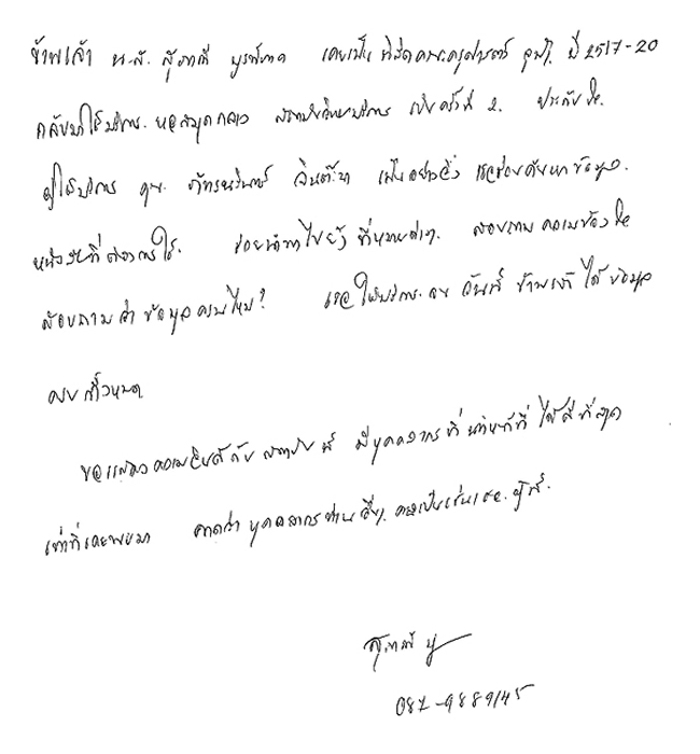 ข้าพเจ้า น.ส. สุภาณี เคยเป็น นิสิตคณะครุศาสตร์ จุฬาฯ ปี 2517-20
กลับมาใช้บริการ หอสมุดกลาง สถาบันวิทยบริการ เป็นครั้งที่ 2. ประทับใจ
ผู้ให้บริการ คุณ จินต๊ะนา เป็นอย่างยิ่ง เธอช่วยค้นหาข้อมูล
หนังสือที่ต้องการใช้. ช่วยนำทางไปยัง ที่หมายต่างๆ. สอบถามความข้องใจ
สอบถามว่า ข้อมูลครบไหม? เธอให้บริการ จน วันนี้ ข้าพเจ้าได้ข้อมูล
ครบทั้งหมด
ขอแสดงความยินดีกับ สถาบันนี้ มีบุคคลากรที่ทำหน้าที่ได้ดีที่สุด
เท่าที่เคยพบมา คาดว่า บุคคลากรท่านอื่นๆ คงเป็นเช่นเธอผู้นี้.
สุภาณี บู